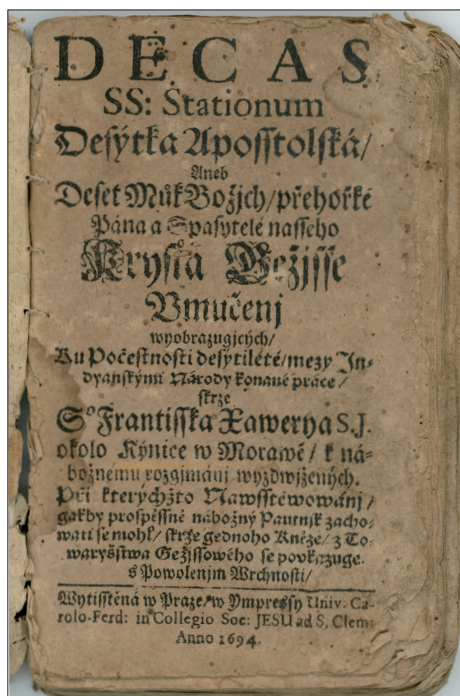 DECAS
SS: Stationum
Desýtka Aposstolská/
Aneb
Deset Můk Božjch/přehořké
Pána a Spasytele nasseho
Krysta Gežjsse
Vmučenj
wyobrazugjcých/
Ku Počestnosti desýtilété/mezy In-
dyanskými Národy konané práce/
skrze
Sº Frantisska Xawerya S.J.
okolo Kýnice w Morawě/ k ná-
božnému rozgjmánj wyzdwjžených.
Při kterýchžto Nawsstěwowánj/
gakby prospěssně nábožný Pautnjk zacho-
wati se mohl/ skrze gednoho Kněze/ z To-
warysstwa Gežjssowého se povkazuge.
s Powolenjm Wrchnosti/
Wytisstěná w Praze/w Ympressy Univ: Ca-
rolo-Ferd: in Collegio Soc: JESU ad S. Clem:
Anno 1694.